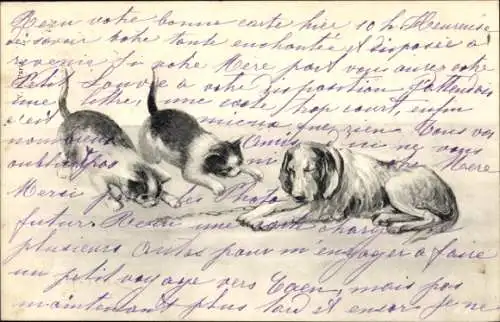 Reçu votre bonne carte hier 10 h Heureuse
de savoir votre tante enchantée et disposée à
revenir Si votre Mère part vous aurez votre
à votre disposition J'attendais
une lettre, une carte trop court, enfin
c'est mieux que rien Vous vos
nombreux Amis
oubliez pas Mère
Merci Photo
futur. Reçu une
plusieurs Autos pour m'engager à faire
un petit voyage vers Caen, mais pas
maintenant plus tard et encor je ne